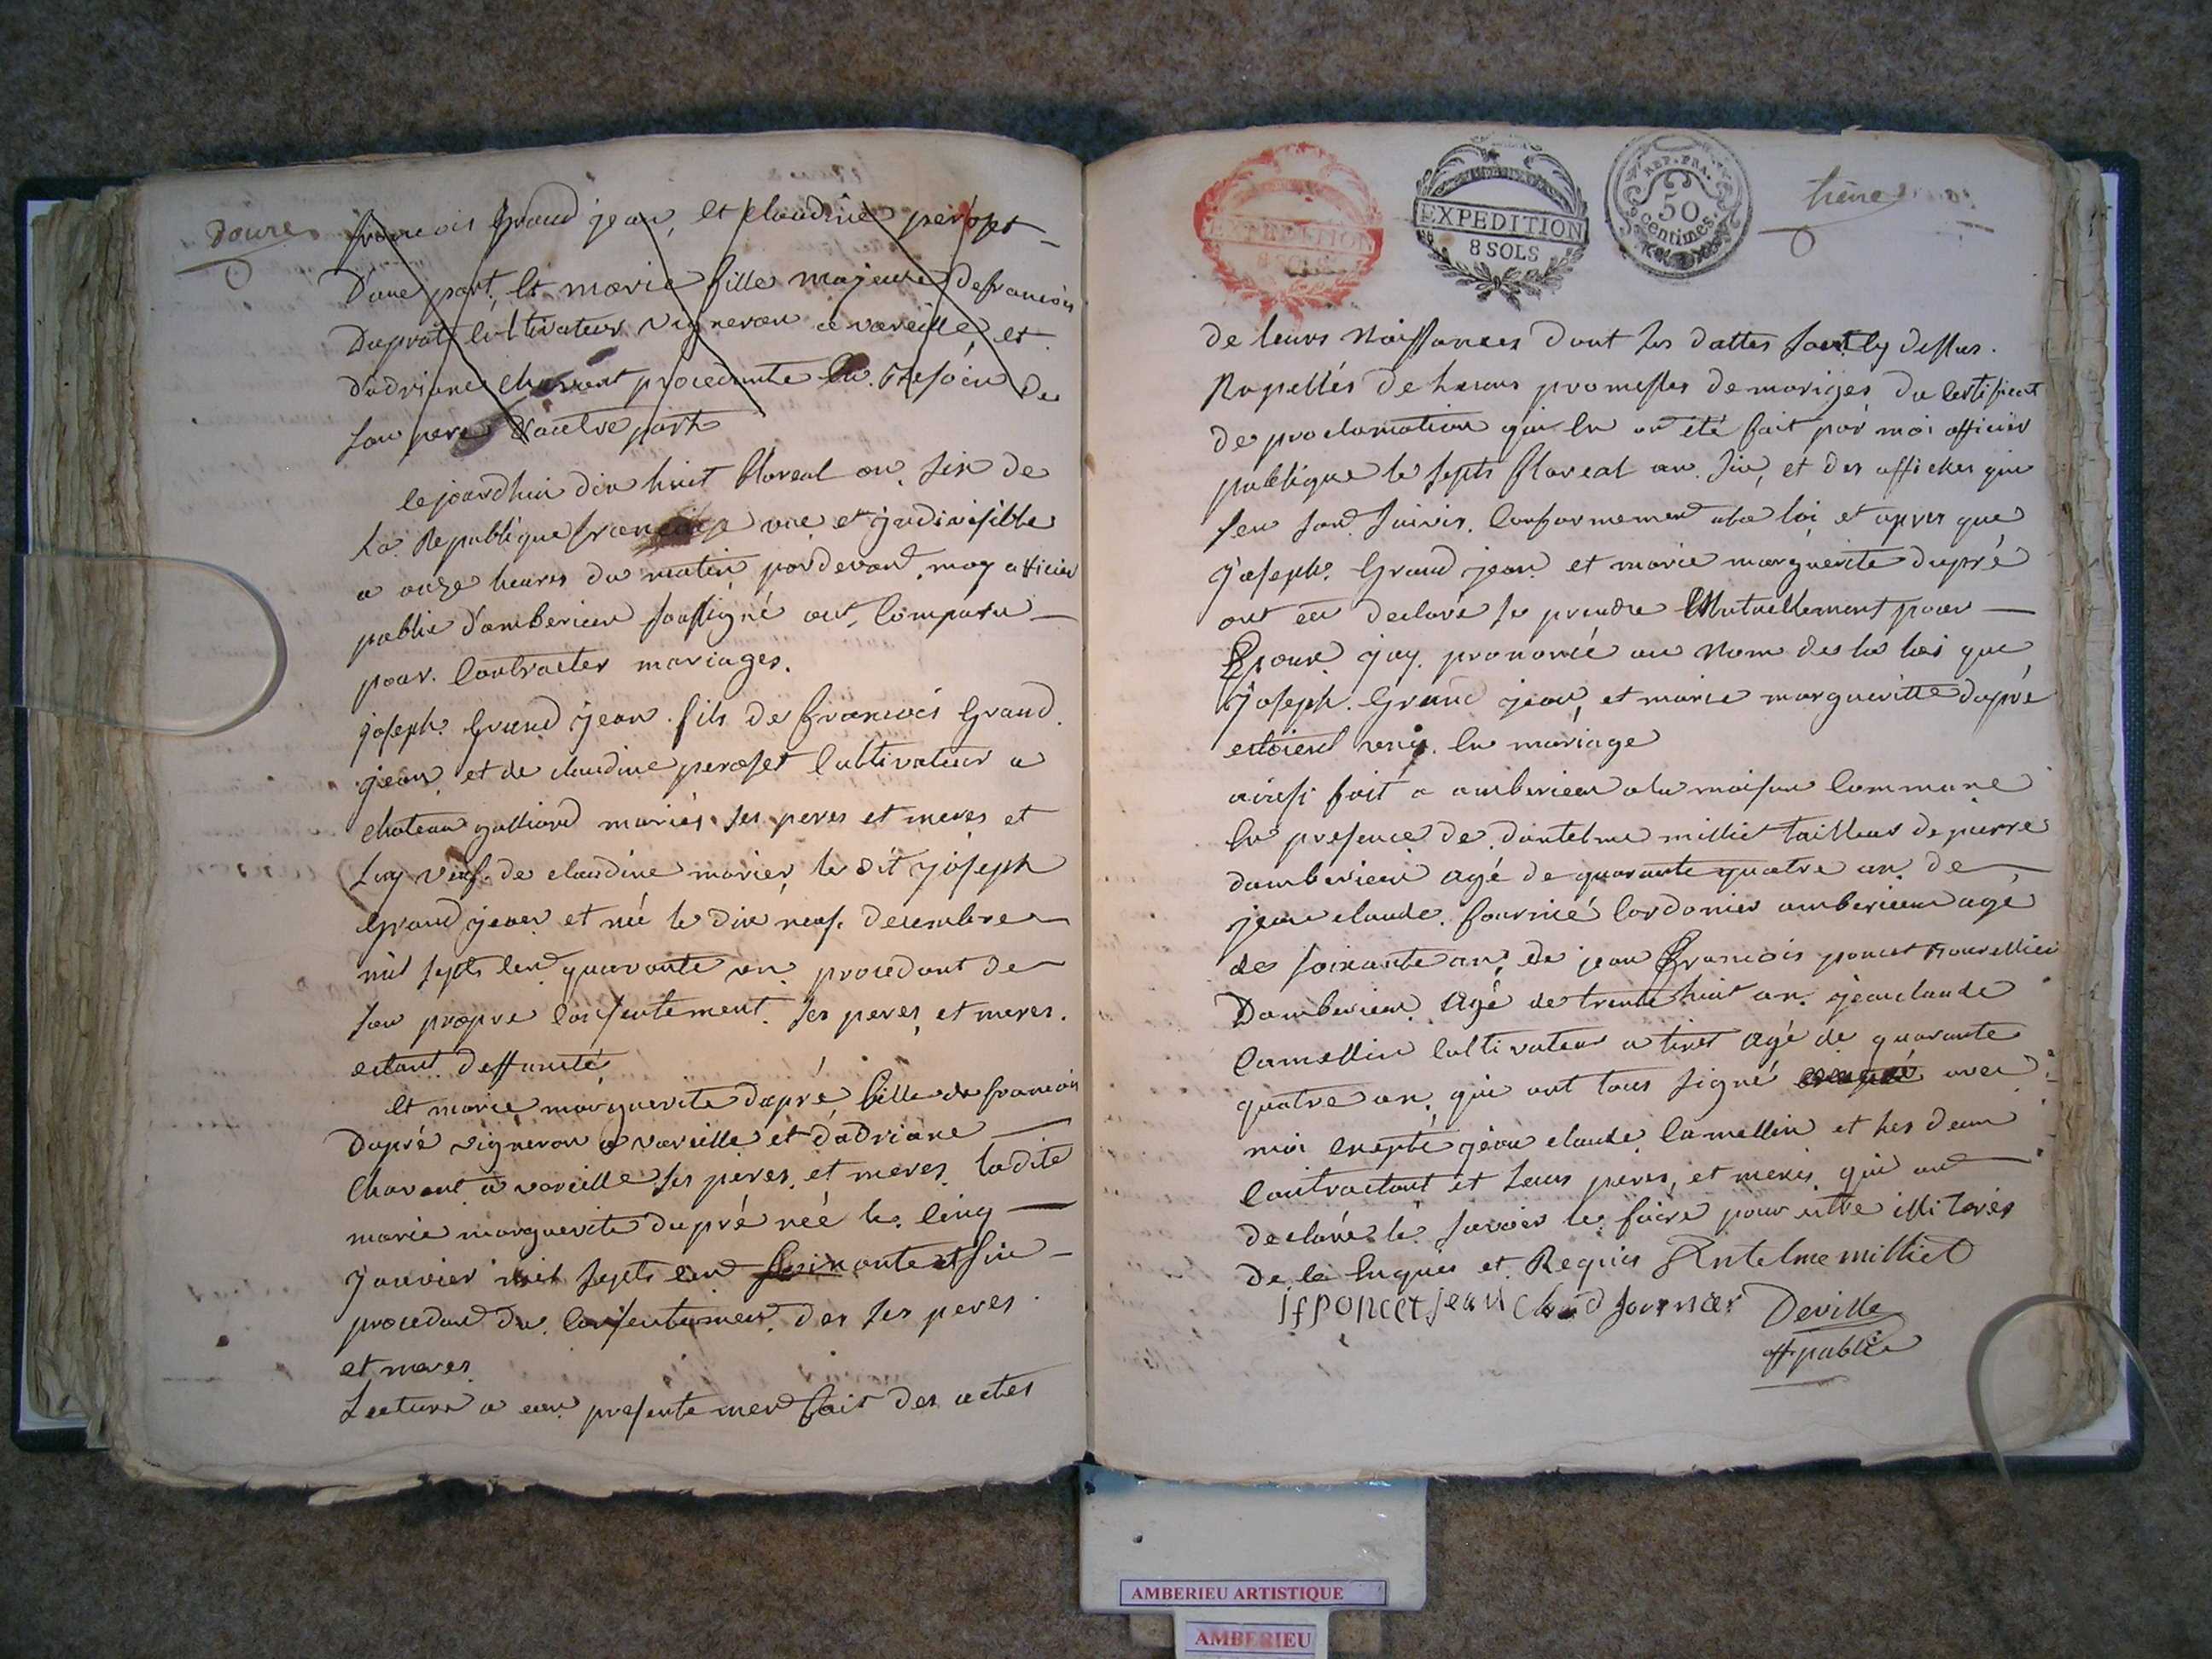 douze
francois grand jean, et claudine peroset
D'une part, et marie fille majeure de francois
Dupraté cultivateur vigneron a vareille, et
dadriane chavent procedante de
son pere d'autre part
cejourdhui dix huit floreal an six de
La Republique francaise une et jndivisible
a onze heures du matin pardevand moy officier
public d'amberieu soussigné ont comparu
pour contracter mariages.
joseph grand jean fils de francois Grand
jean, et de claudine peroset cultivateur a
chateau galliard mariés ses peres et meres et
Luy veuf de claudine marier, le dit joseph
grand jean et né le dix neuf decembre
mil septs cend quarante un procedant de
son propre consentement ses peres, et meres
estant deffuncté
et marie marguerite dupré fille de francois
Dupré vigneron a vareille et d'adriane
Chavant a vareille ses pères, et meres, ladite
marie marguerite dupré néé le cinq
janvier mil septs cend soixante et six
procedand du consentement des ses peres
et meres
Lecture a eux presentemend fait des actes
EXPEDITION
8 SOLS
EXPEDITION
8 SOLS
REP. FRA.
50
Centimes.
treize
de leurs Naissances dont les dattes sont cy dessus.
Rapellés de leurs promesses de mariges du certificat
de proclamation qui en on été fait par moi officier
publique le septs floreal an six, et des affiches qui
sen sond suivis conformemend ala loi et apres que
joseph Grand jean et marie marguerite dupré
ont eu declaré se prendre Mutuellement pour
Epoux jay prononcé au Nom de la loi que
joseph Grand jean, et marie margueritte dupré
estoiend unis en mariage
ainsi fait a amberieu a la maison commune
En presence de dantelme milliet tailleur de pierre
damberieu agé de quarante quatre an de
jean claude fournié cordonier amberieu agé
de soixante an, de jean francois poncet
Damberieu Agé de trente huit an jean claude
Camellin cultivateur a tiret agé de quarante
quatre an, qui ont tous signé avec
moi excepté jean claude camellin et les deux
contractant et leurs pères, et meres qui ond
declaré le savoir le faire pour estre illitarés
De ce Enquis et Requis Antelme milliet
jf poncet jean claud fournier Deville
off public
AMBERIEU ARTISTIQUE
AMBERIEU